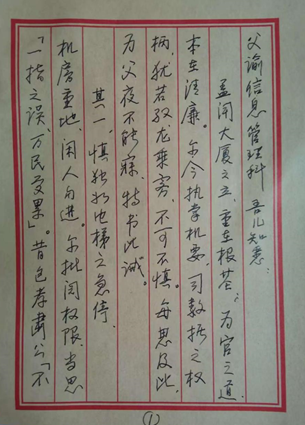 父谕信息管理科 吾儿知悉：
孟闻大厦之立，重在根茎；为官之道，
本在清廉。尔今执掌机要，司数据之权
柄，犹若驭龙乘雾，不可不慎。每思及此，
为父夜不能寐，特书此诫。
其一、慎独如电梯之急停。
机房重地，闲人勿进。尔批阅权限，当思
「一指之误，万民受累」。昔包孝肃公「不
①